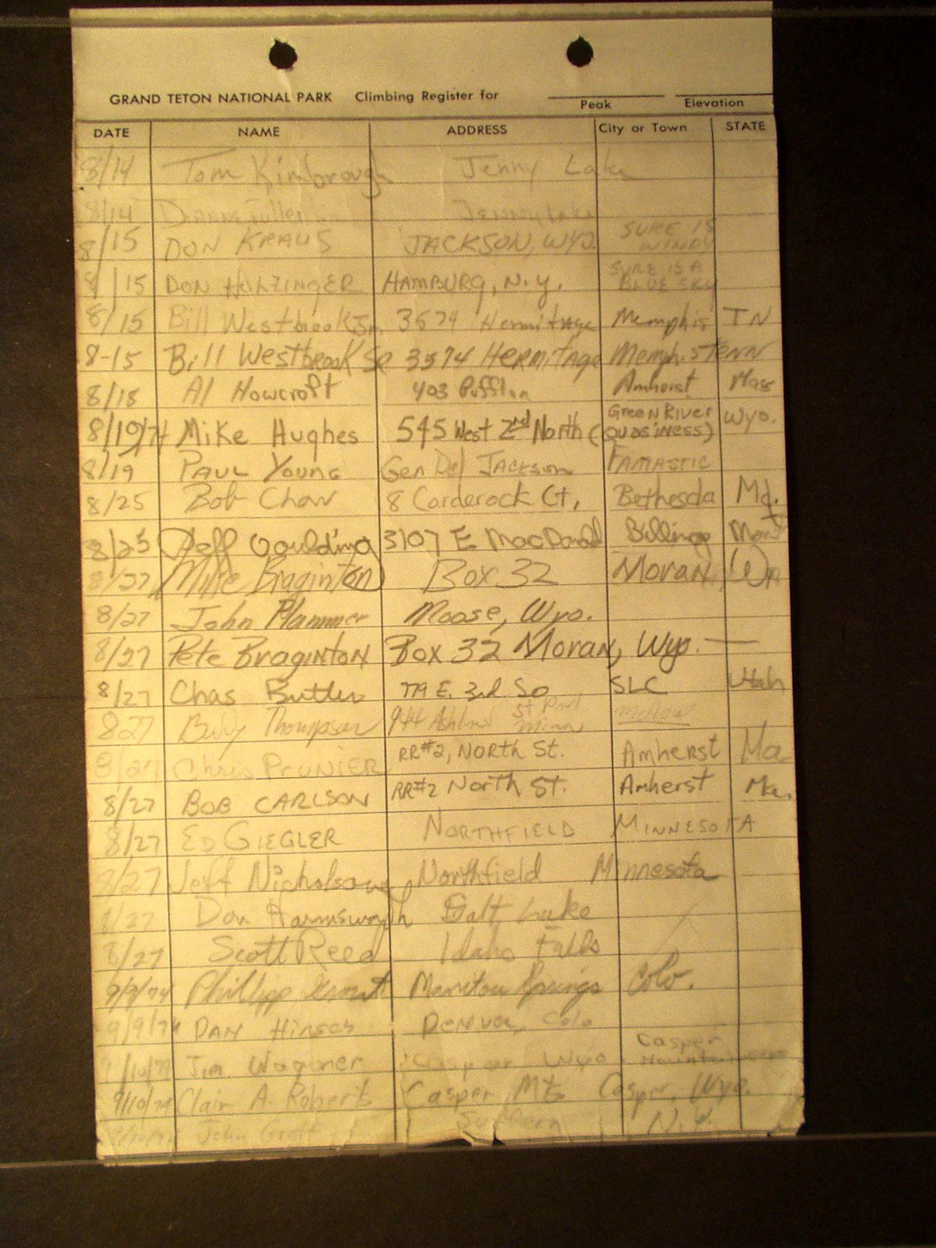 GRAND TETON NATIONAL PARK Climbing Register for
Peak Elevation
DATE NAME ADDRESS City or Town STATE
8/14 Tom Kimbrough Jenny Lake
8/14 Jenny Lake
8/15 DON KRAUS JACKSON, WYO. SURE IS WINDY
8/15 DON HOLTZINGER HAMBURG, N.Y. SURE IS A BLUE SKY
8/15 Bill Westbrook Jr. 3574 Hermitage Memphis TN
8-15 Bill Westbrook Sr 3574 Hermitage Memphis TENN
8/18 Al Howcroft 403 Puffton Amherst Mass
8/19/74 Mike Hughes 545 West 2nd North Green River Wyo.
8/19 PAUL YOUNG Gen Del JACKSON FANTASTIC
8/25 Bob Chow 8 Carderock Ct, Bethesda Md.
8/25 Jeff Goulding 3107 E MacDonald Billings Mont
8/27 Mike Braginton Box 32 MORAN
8/27 John Plummer Moose, Wyo.
8/27 Pete BRAGINTON Box 32 MORAN, Wyo.
8/27 Chas Butler 779 E. 3rd So SLC Utah
827 Billy Thompson 944 Ashland St Paul Minn mellow
8/27 Chris PRUNIER RR#2, NORTH ST. Amherst Ma.
8/27 BOB CARLSON RR#2 North ST. Amherst Ma.
8/27 ED GIEGLER NORTHFIELD MINNESOTA
8/27 Jeff Nicholson Northfield Minnesota
8/27 Don Harmsworth Salt Lake
8/27 Scott Reed Idaho Falls
9/9/74 Phillipp Grout Manitou Springs Colo.
9/9/74 DAN HIRSCH DENVER, Colo
9/10/74 Jim Wagoner Casper Wyo Casper Mountaineers
9/10/74 Clair A. Roberts Casper Mts Casper, Wyo.
John Groff Suffern N.Y.